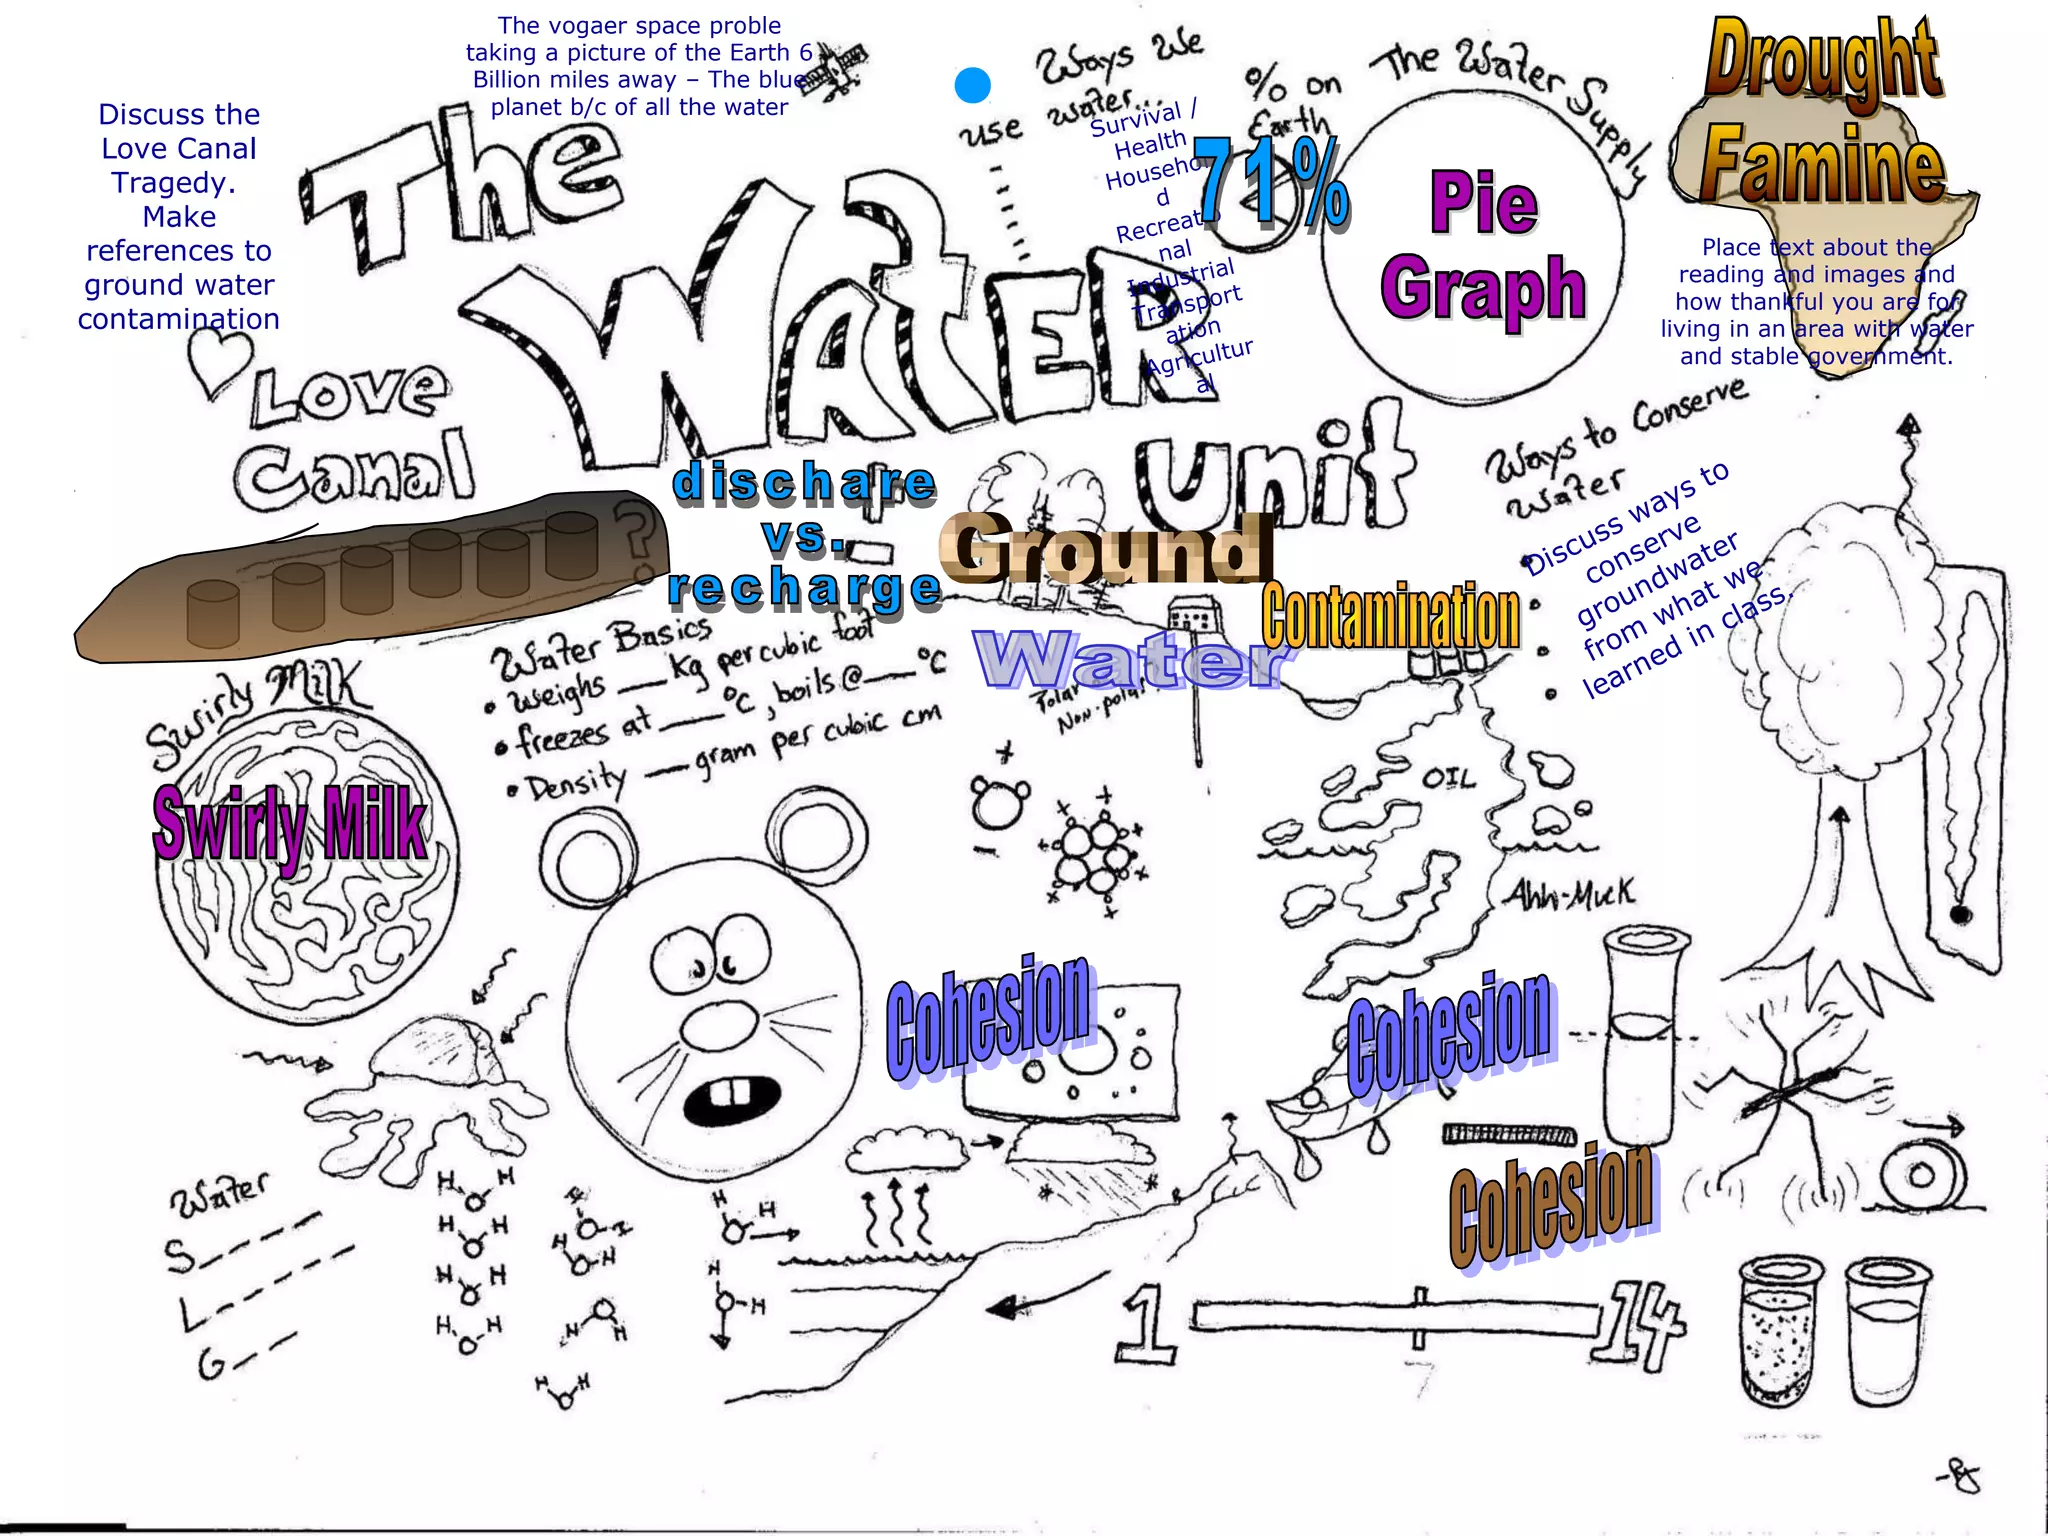 The vogaer space proble
taking a picture of the Earth 6
Billion miles away – The blue
planet b/c of all the water
Discuss the
Love Canal
Tragedy.
Make
references to
ground water
contamination
The
Water
Unit
Ways We
use water...
Survival /
Health
Househol
d
Recreatio
nal
Industrial
Transport
ation
Agricultur
al
% on
Earth
71%
The Water Supply
Pie
Graph
Drought
Famine
Place text about the
reading and images and
how thankful you are for
living in an area with water
and stable government.
Love
Canal
?
dischare
vs.
recharge
Ground
Water
Contamination
Ways to Conserve
Water
Discuss ways to
conserve
groundwater
from what we
learned in class.
Swirly Milk
Swirly Milk
Water Basics
• weighs __ kg per cubic foot
• freezes at ___ °C, boils @ ___ °C
• Density __ gram per cubic cm
Polar
Non-polar
+
-
OIL
Ahh-Muck
Cohesion
Cohesion
Cohesion
Water
S_ _ _ _ _
L_ _ _ _ _ _
G_ _ _
H H
H H
H H
H H
H H
H H
H H
H H
H H
H H
1
14
7